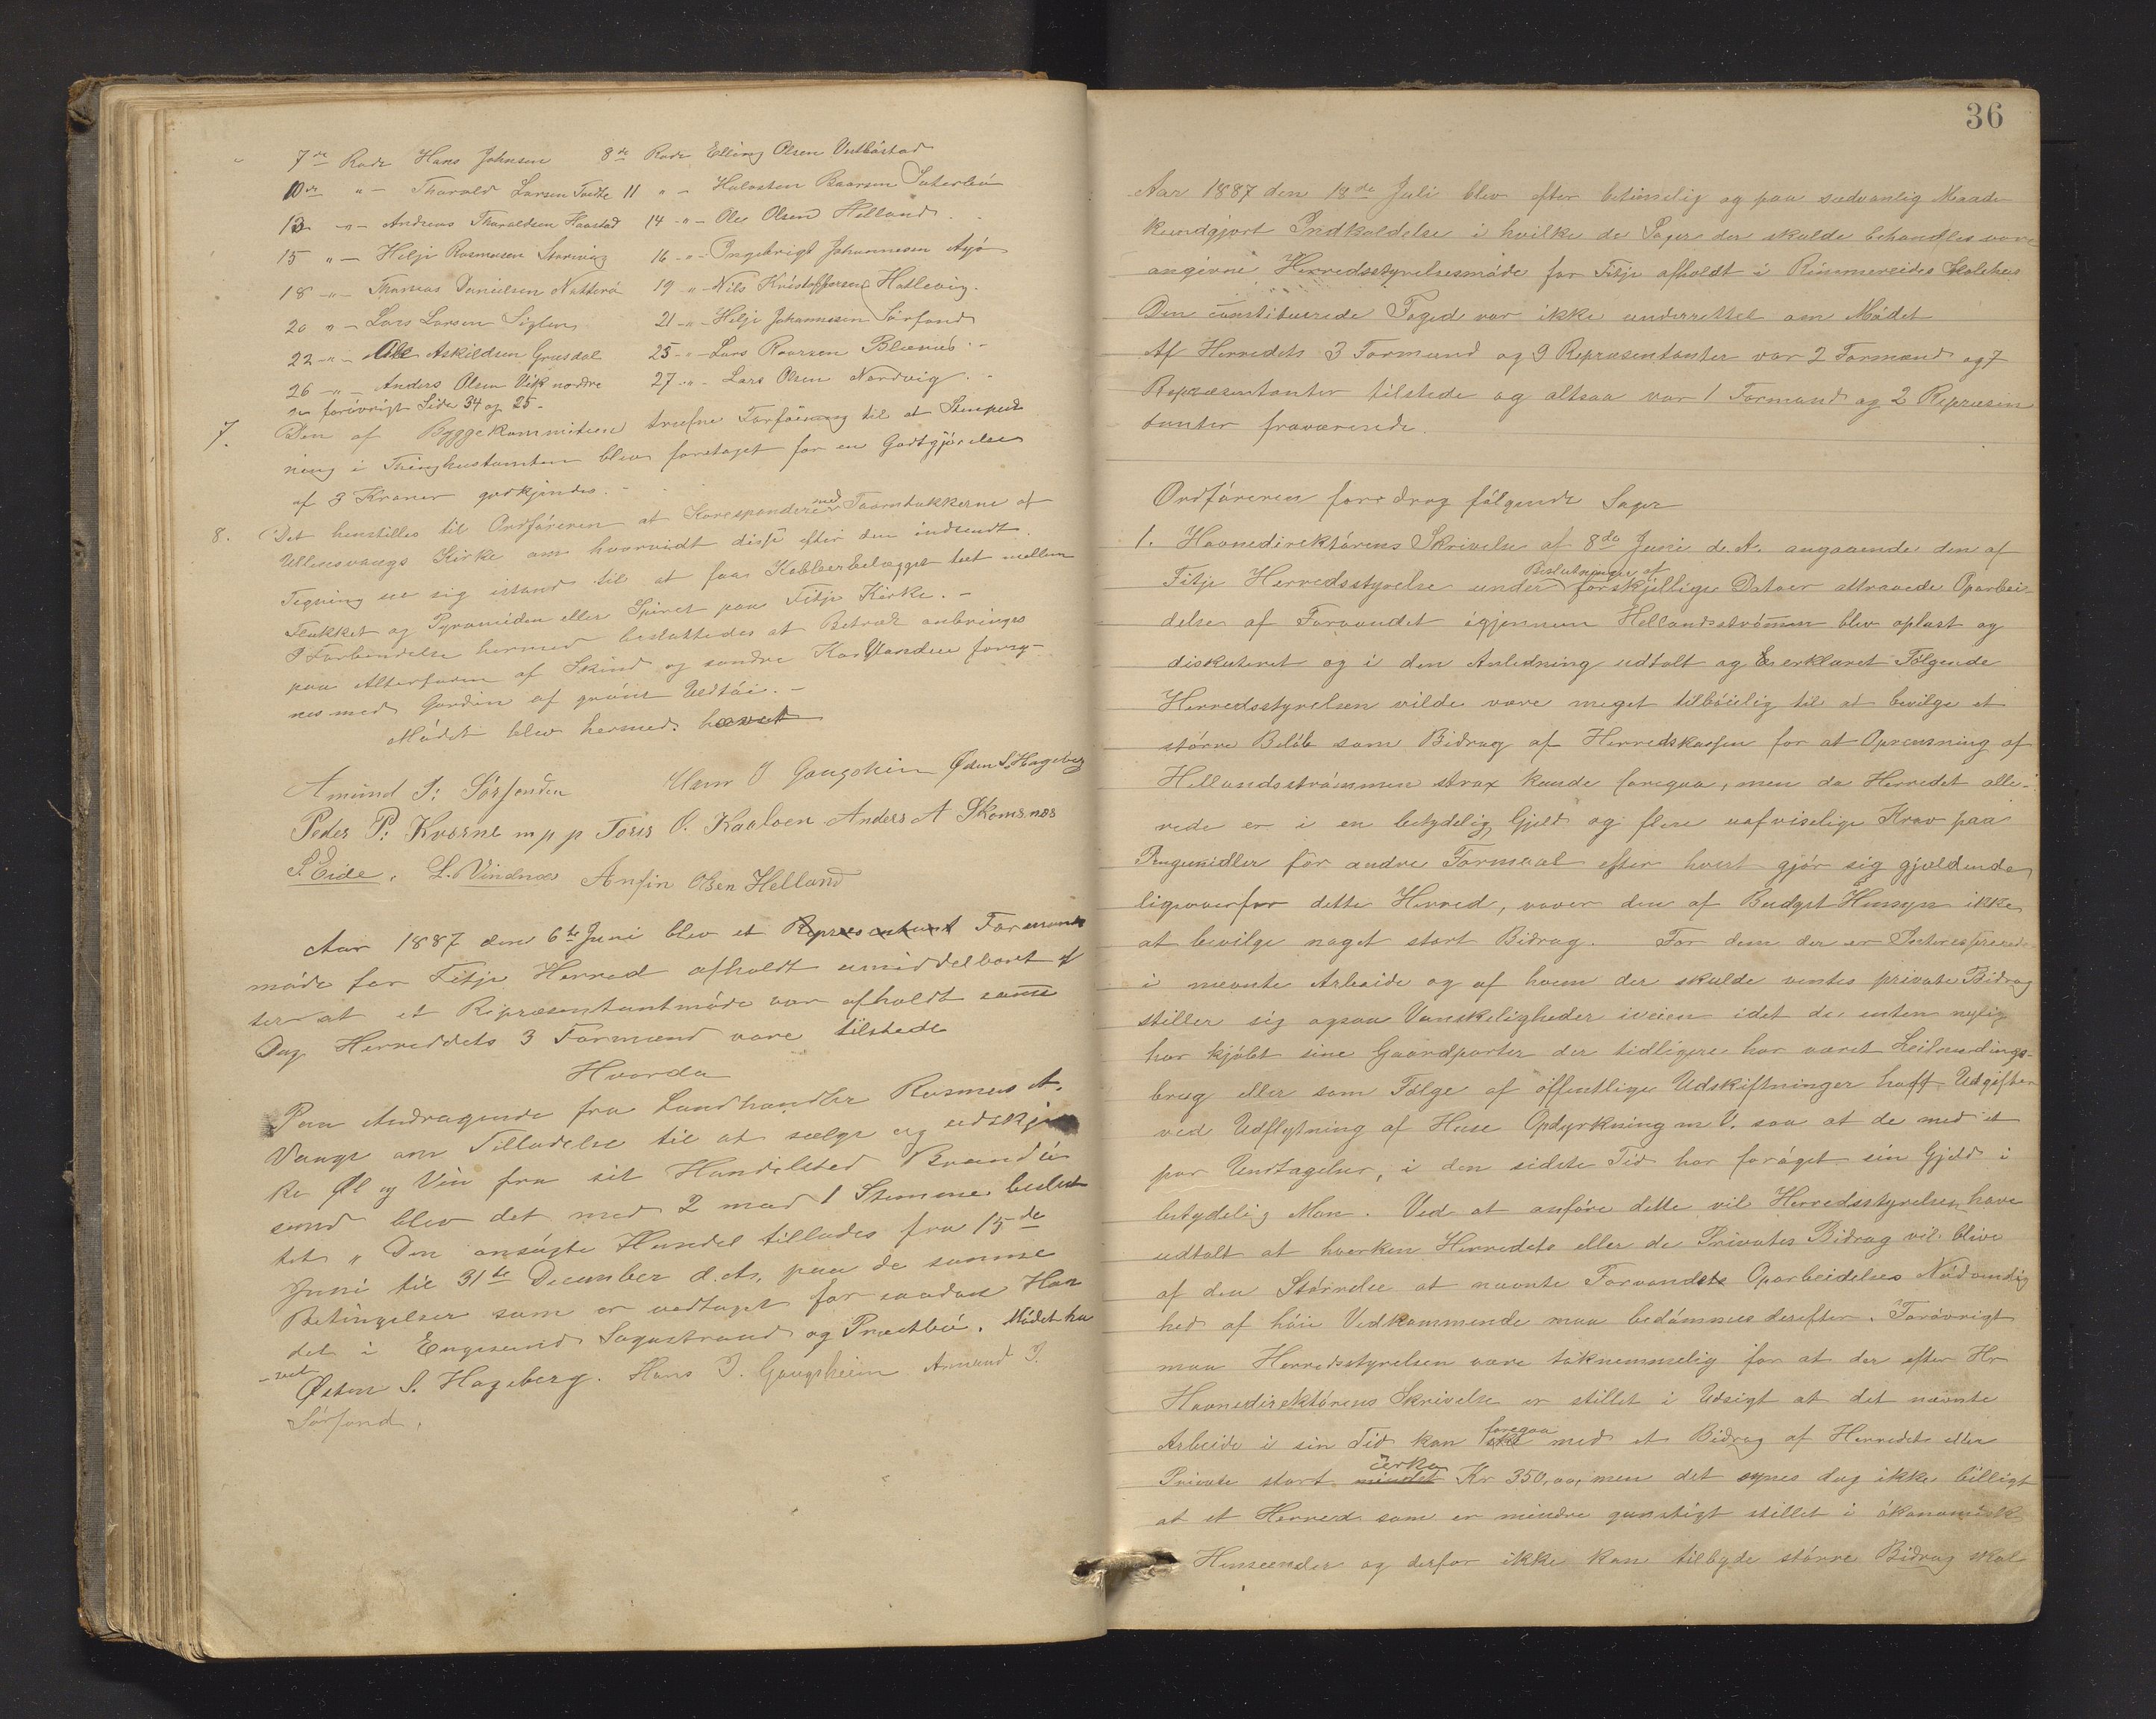 7de Rode Hans Johnsen 8de Rode Elling Olsen Vestbøstad
10de " - Tharald Larsen Tvedte 11 " - Halvsten Baarsen Sæterbø
13 -"- Andreas Tharaldsen Haastad 14 -"- Ole Olsen Helland
15 " - Helje Rasmusen Storevig 16 -"- Ingebrigt Johannesen
18 -"- Thomas Danielsen Natterø 19 -"- Nils Kristoffersen Hatlevig.
20 " - Lars Larsen 21 -"- Helje Johannesen Sørfond
22 -"- Ole Askildsen Grusdal 25 -"- Lars
26 -"- Anders Olsen Vik nordre 27 -"- Lars Olsen Nordvig
se forøvrigt Side 34 og 25.
7. Den af Byggekommiteen trufne Forføining til at
ning i Thinghustomten blev foretaget for en Godtgjørelse
af 3 Kroner godkjendes.
8. Det henstilles til Ordføreren at Korespondere med Taarntækkerne af
Ullensvangs Kirke om hvorvidt disse efter den indsendt
Tegning ser sig istand til at faa Kobberbelægget tæt mellem
og Pyramiden eller Spiret paa Fitje Kirke. -
I Forbindelse hermed besluttedes at Betræk anbringes
paa Alterfoden af Skind og søndre forsy-
nes med Gardin af grønt Uldtøi. -
Mødet blev hermed hævet
Amund J: Sørfonden Hans J Gaugshein Østen S. Hageberg
Peder P: Kværne m p p Toris O. Kaaloen Anders A Skomsnæs
S. Eide. L. Vindnæs Anfin Olsen Helland
Aar 1887 den 6te Juni blev et Repræsentant Formands
møde for Fitje Herred afholdt umiddelbart ef
ter at et Repræsentantmøde var afholdt samme
Dag Herreddets 3 Formænd vare tilstede
Hvorda
Paa Andragende fra Landhandler Rasmus A.
Vange om Tilladelse til at sælge og udskjæn
ke Øl og Vin fra sit Handelsted Brandø
sund blev det med 2 mod 1 Stemme beslut
tet " Den ansøgte Handel tillades fra 15de
Juni til 31te December d.A. paa de samme
Betingelser som er vedtaget for saadan Han
del i Engesund Sagastrand og Præstbø. Mødet hæ
-vet
Østen S. Hageberg. Hans J. Gaugshein Amund J.
Sørfond.
36
Aar 1887 den 18de Juli blev efter betimelig og paa sædvanlig Maade
kundgjort Indkaldelse i hvilke de Sager der skulde behandles vare
angivne Herredsstyrelsesmøde for Fitje afholdt i Rimmereides Skolehus
Den constituerede Foged var ikke underrettet om Mødet
Af Herredets 3 Formænd og 9 Repræsentanter var 2 Formænd og 7
Repræsentanter tilstede og altsaa var 1 Formand og 2 Repræsen
tanter fraværende.
Ordføreren foredrog følgende Sager
1. Havnedirektørens Skrivelse af 8de Juni d. A. angaaende den af
Fitje Herredsstyrelse under Beslutninger af forskjellige Datoer attraaede Oparbei-
delse af Farvandet igjennem Hellandsstrømmen blev oplæst og
diskuteret og i den Anledning udtalt og erklæret Følgende
Herredsstyrelsen vilde være meget tilbøielig til at bevilge et
større Beløb som Bidrag af Herredskassen for at Oprensning af
Hellandsstrømmen strax kunde foregaa, men da Herredet alle-
rede er i en betydelig Gjeld og flere uafviselige Krav paa
Pengemidler for andre Formaal efter hvert gjør sig gjældende
ligeoverfor dette Herred, vover den af Budget Hensyn ikke
at bevilge noget stort Bidrag. For dem der er Interesserede
i nævnte Arbeide og af hvem der skulde ventes private Bidrag
stiller sig ogsaa Vanskeligheder iveien idet de enten nylig
har kjøbt sine Gaardparter der tidligere har været Leilændings-
brug eller som Følge af offentlige Udskiftninger haft Udgifter
ved Udflytning af Huse Opdyrkning m V. saa at de med et
par Undtagelser, i den sidste Tid har forøget sin Gjeld i
betydelig Mon. Ved at anføre dette vil Herredsstyrelsen have
udtalt at hverken Herredets eller de Privates Bidrag vil blive
af den Størrelse at nævnte Farvandets Oparbeidelses Nødvendig
hed af høie Vedkommende maa bedømmes derefter. Forøvrigt
maa Herredsstyrelsen være taknemmelig for at der efter Hr
Havnedirektørens Skrivelse er stillet i Udsigt at det nævnte
Arbeide i sin Tid kan foregaa med et Bidrag af Herredet eller
Private stort cirka mindst Kr 350,00, men det synes dog ikke billigt
at et Herred som er mindre gunstigt stillet i økonomisk
Henseender og derfor ikke kan tilbyde større Bidrag skal